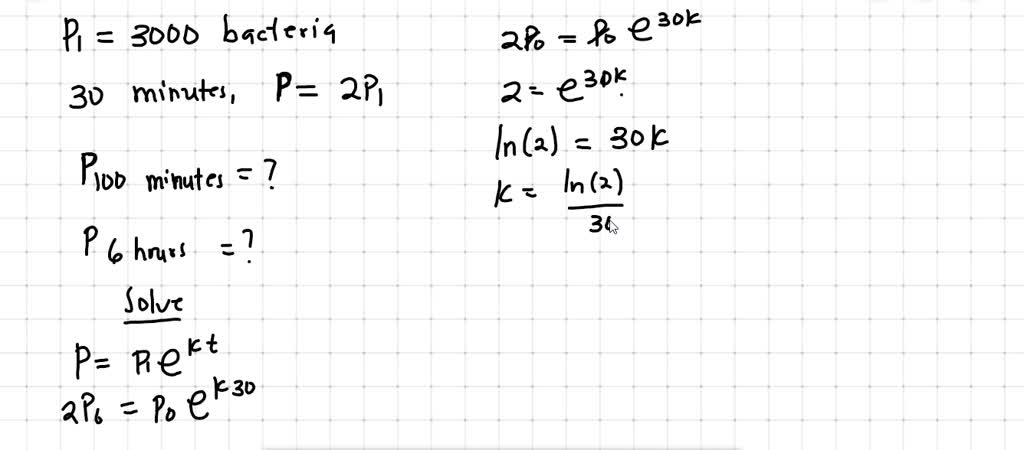 P₁ = 3000 bacteria
30 minutes, P = 2P₁
P₁₀₀ minutes = ?
P 6 hours = ?
Solve
P = P₁ e^kt
2P₀ = P₀ e^k30
2P₀ = P₀ e^30k
2 = e^30k.
ln(2) = 30k
k = ln(2)/30